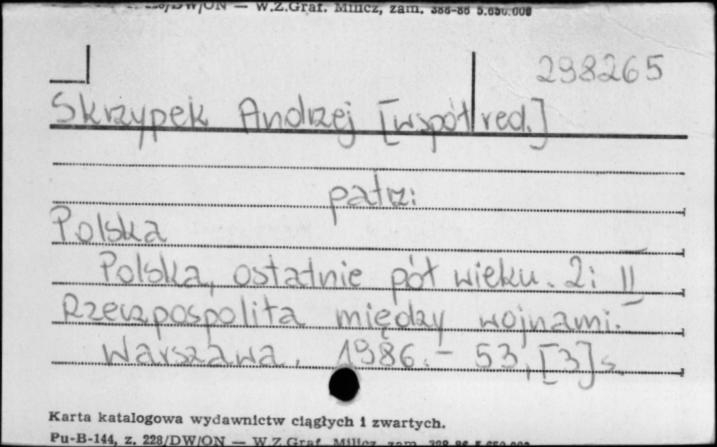 DW/ON — W.Z.Graf. Milicz, zam. 388-86 5.650.000
298265
Skrzypek Andrzej [współred.]
patrz:
Polska
Polska, ostatnie pół wieku. 2: II
Rzeczpospolita między wojnami.
Warszawa, 1986.- 53, [3] s.
Karta katalogowa wydawnictw ciągłych i zwartych.
Pu-B-144, z. 228/DW/ON — W.Z.Graf. Milicz zam. 388-86 5.650.000